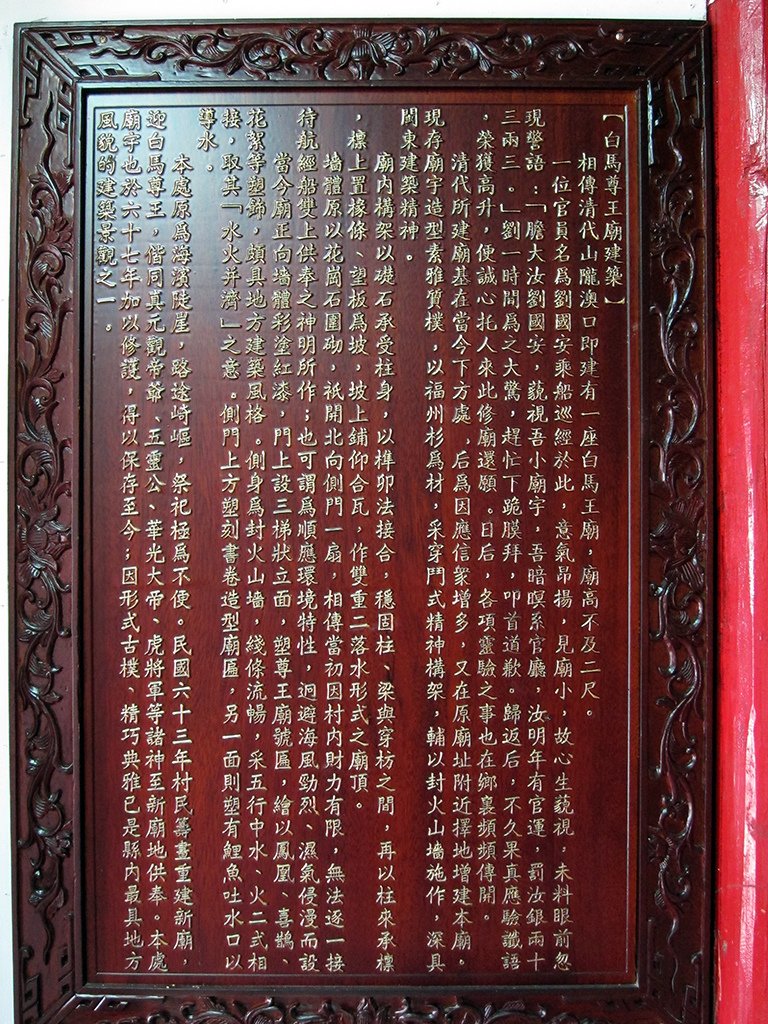 【白馬尊王廟建築】
相傳清代山隴澳口即建有一座白馬王廟，廟高不及二尺。
一位官員名爲劉國安乘船巡經於此，意氣昂揚，見廟小，故心生藐視，未料眼前忽
現警語：「膽大汝劉國安，藐視吾小廟宇，吾暗暝系官廳，汝明年有官運，罰汝銀兩十
三兩三。」劉一時間爲之大驚，趕忙下跪膜拜，叩首道歉。歸返后，不久果真應驗讖語
，榮獲高升，便誠心托人來此修廟還願。日后，各項靈驗之事也在鄉裏頻頻傳開。
清代所建廟基在當今下方處，后爲因應信衆增多，又在原廟址附近擇地增建本廟。
現存廟宇造型素雅質樸，以福州杉爲材，采穿鬥式精神構架，輔以封火山墻施作，深具
閩東建築精神。
廟內構架以礎石承受柱身，以榫卯法接合，穩固柱、梁與穿枋之間，再以柱來承檩
，檩上置椽條、望板爲坡，坡上鋪仰合瓦，作雙重二落水形式之廟頂。
墻體原以花崗石圍砌，祇開北向側門一扇，相傳當初因村內財力有限，無法逐一接
待航經船雙上供奉之神明所作；也可謂爲順應環境特性，迥避海風勁烈、濕氣侵漫而設
當今廟正向墻體彩塗紅漆，門上設三梯狀立面，塑尊王廟號匾，繪以鳳凰、喜鵲、
花絮等塑飾，頗具地方建築風格。側身爲封火山墻，綫條流暢，采五行中水、火二式相
接，取其「水火并濟」之意。側門上方塑刻書卷造型廟匾，另一面則塑有鯉魚吐水口以
導水。
本處原爲海濱陡崖，路途崎嶇，祭祀極爲不便。民國六十三年村民籌畫重建新廟，
迎白馬尊王，偕同真元觀帝爺、五靈公、華光大帝、虎將軍等諸神至新廟地供奉。本處
廟宇也於六十七年加以修護，得以保存至今；因形式古樸、精巧典雅已是縣內最具地方
風貌的建築景觀之一。